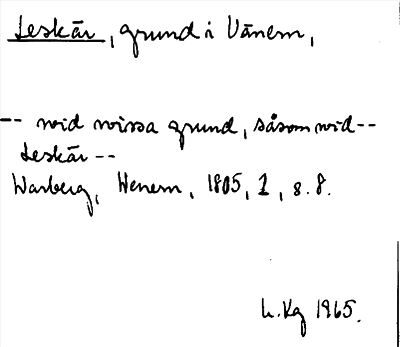 Leskär, grund i Vänern,
-- wid wissa grund, såsom wid --
Leskär --
Warberg, Wenern, 1805, 1, s. 8.
L. Kg 1965.